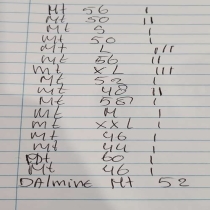 Mt 56 I
Mt 50 II
Mt S I
Mt 50 I
Mt L III
mt 56 II
mt XL III
Mt 52 I
mt 48 II
Mt 58 I
mt M I
mt XXL I
mt 46 I
mt 44 I
Mt 60 I
Mt 46 I
DAlmine Mt 52